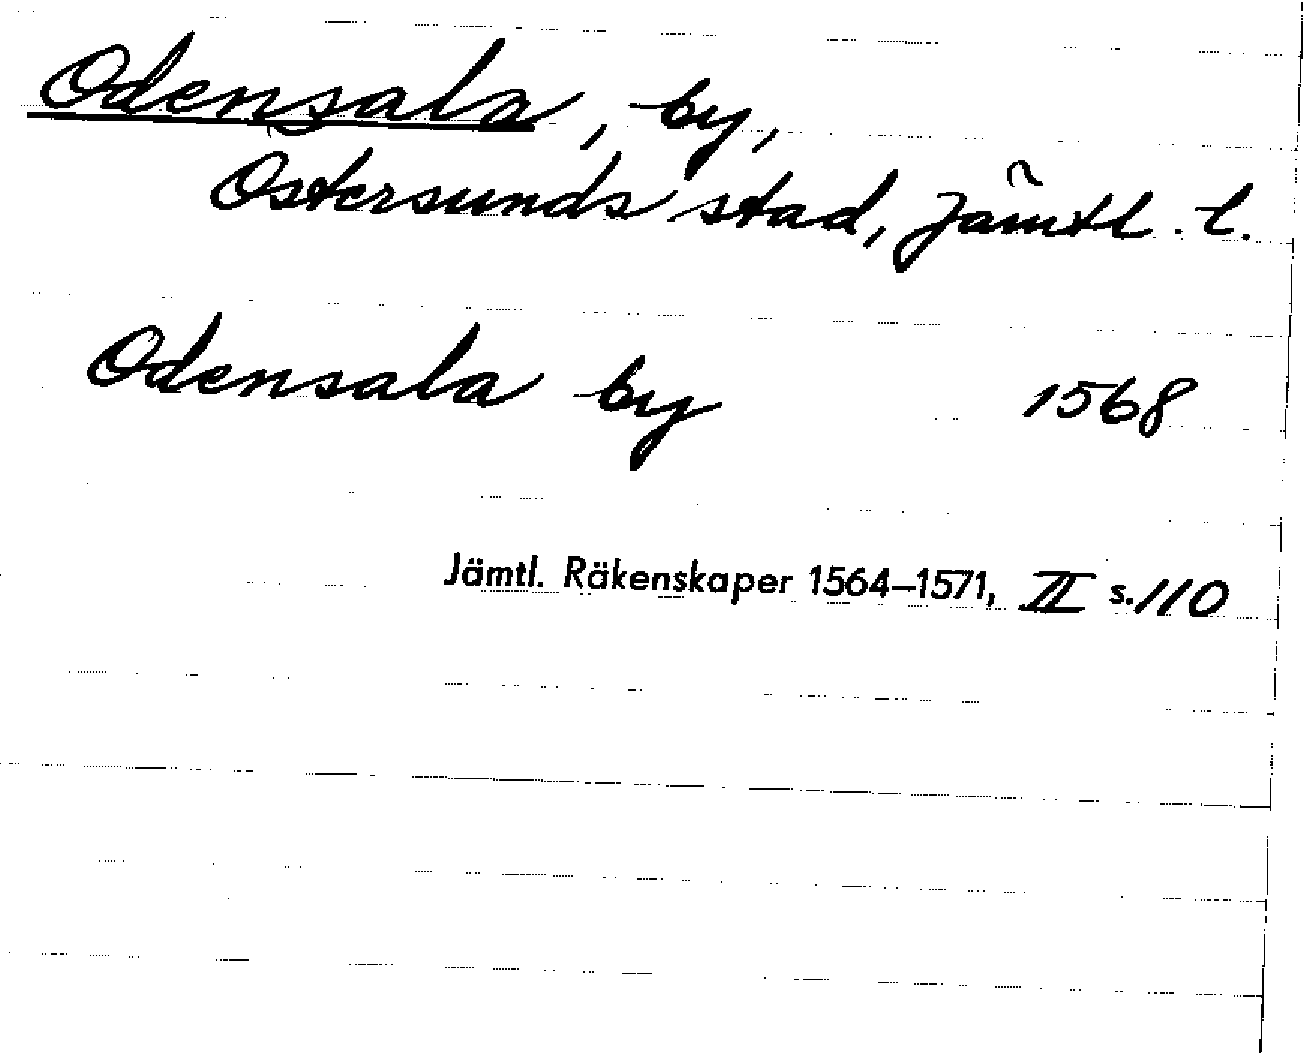 Odensala, by,
Östersunds stad, Jämtl. l.
Odensala by 1568
Jämtl. Räkenskaper 1564–1571, II s. 110